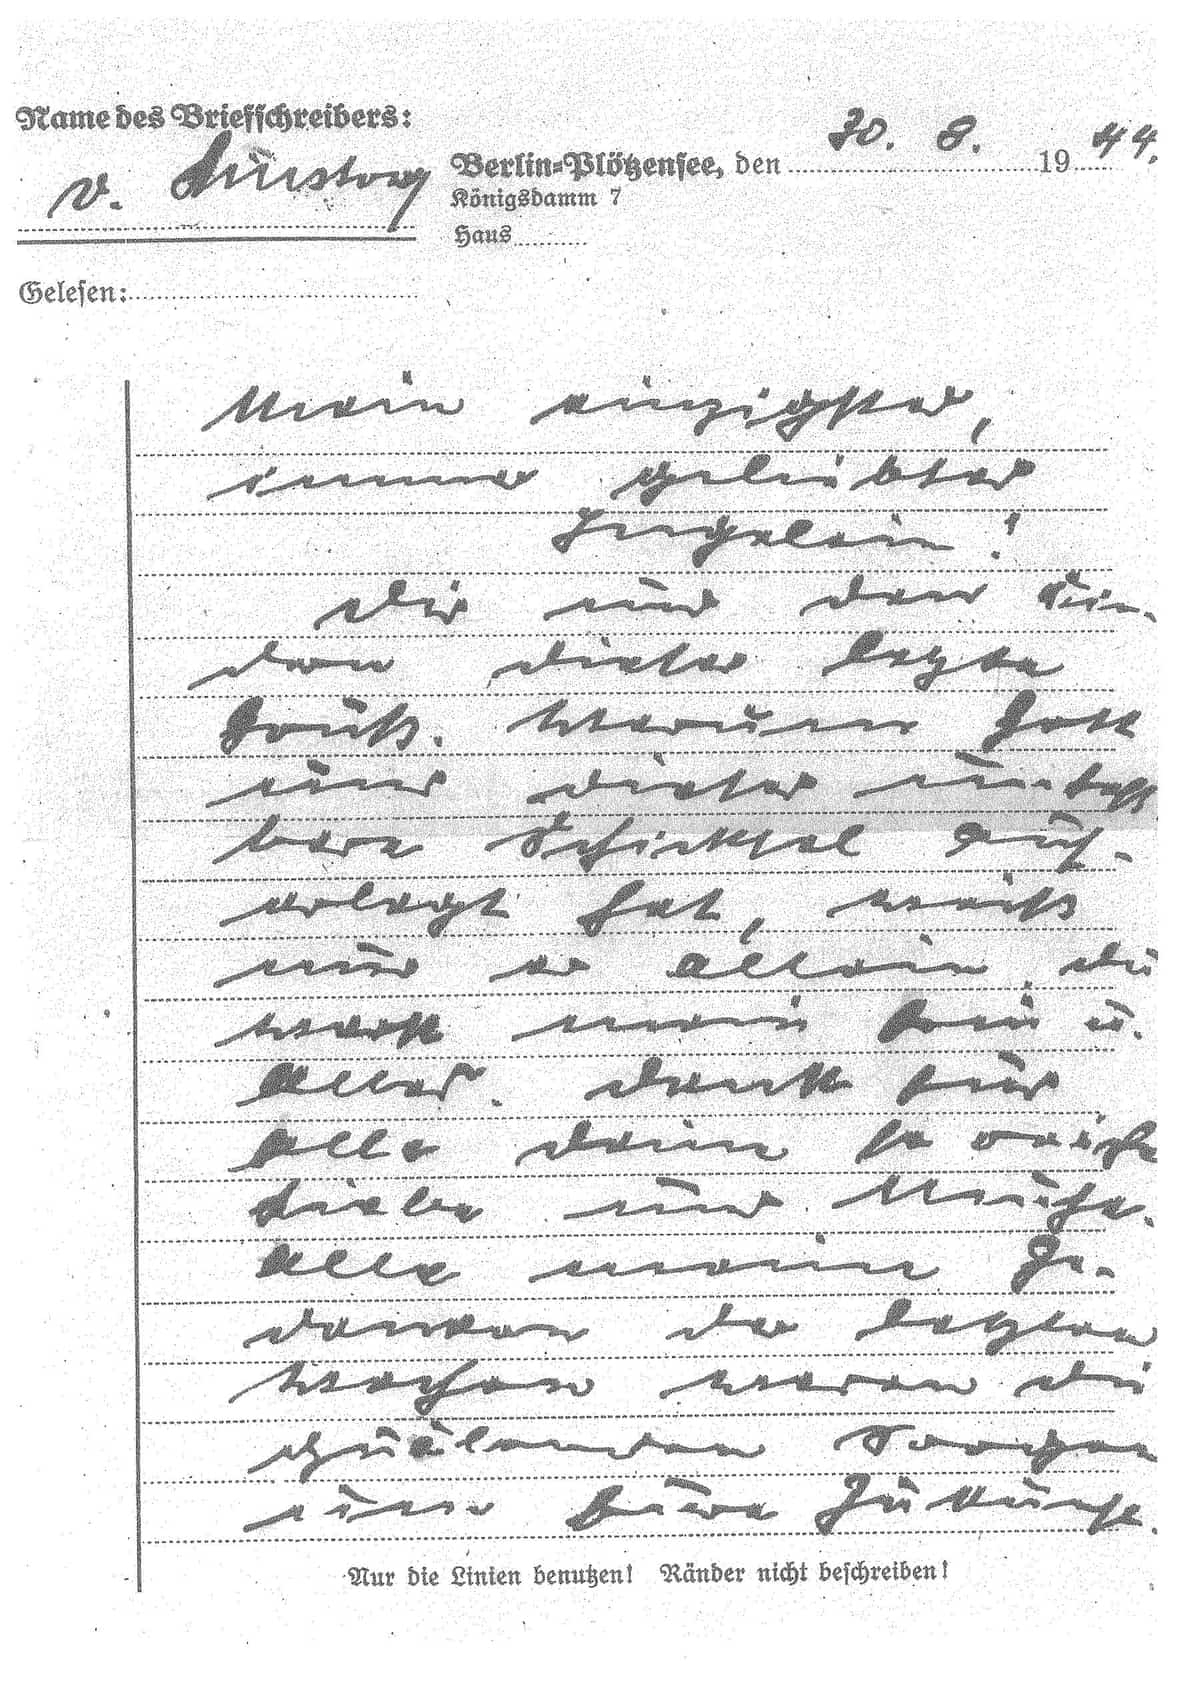 Name des Briefschreibers:
v. Linstow
Berlin-Plötzensee, den 30. 8. 1944.
Königsdamm 7
Haus
Gelesen:
Mein einzigstes,
immer geliebtes
Ingelein!
Dir und den Kin-
dern dieser letzte
Gruß. Warum Gott
uns dieses unfaß-
bare Schicksal auf-
erlegt hat, weiß
nur er allein. Du
warst mein Ein u.
Alles. Dank für
alle Deine so reiche
Liebe und Mühe.
Alle meine Ge-
danken der letzten
Wochen waren die
quälenden Sorgen
um Eure Zukunft.
Nur die Linien benutzen! Ränder nicht beschreiben!